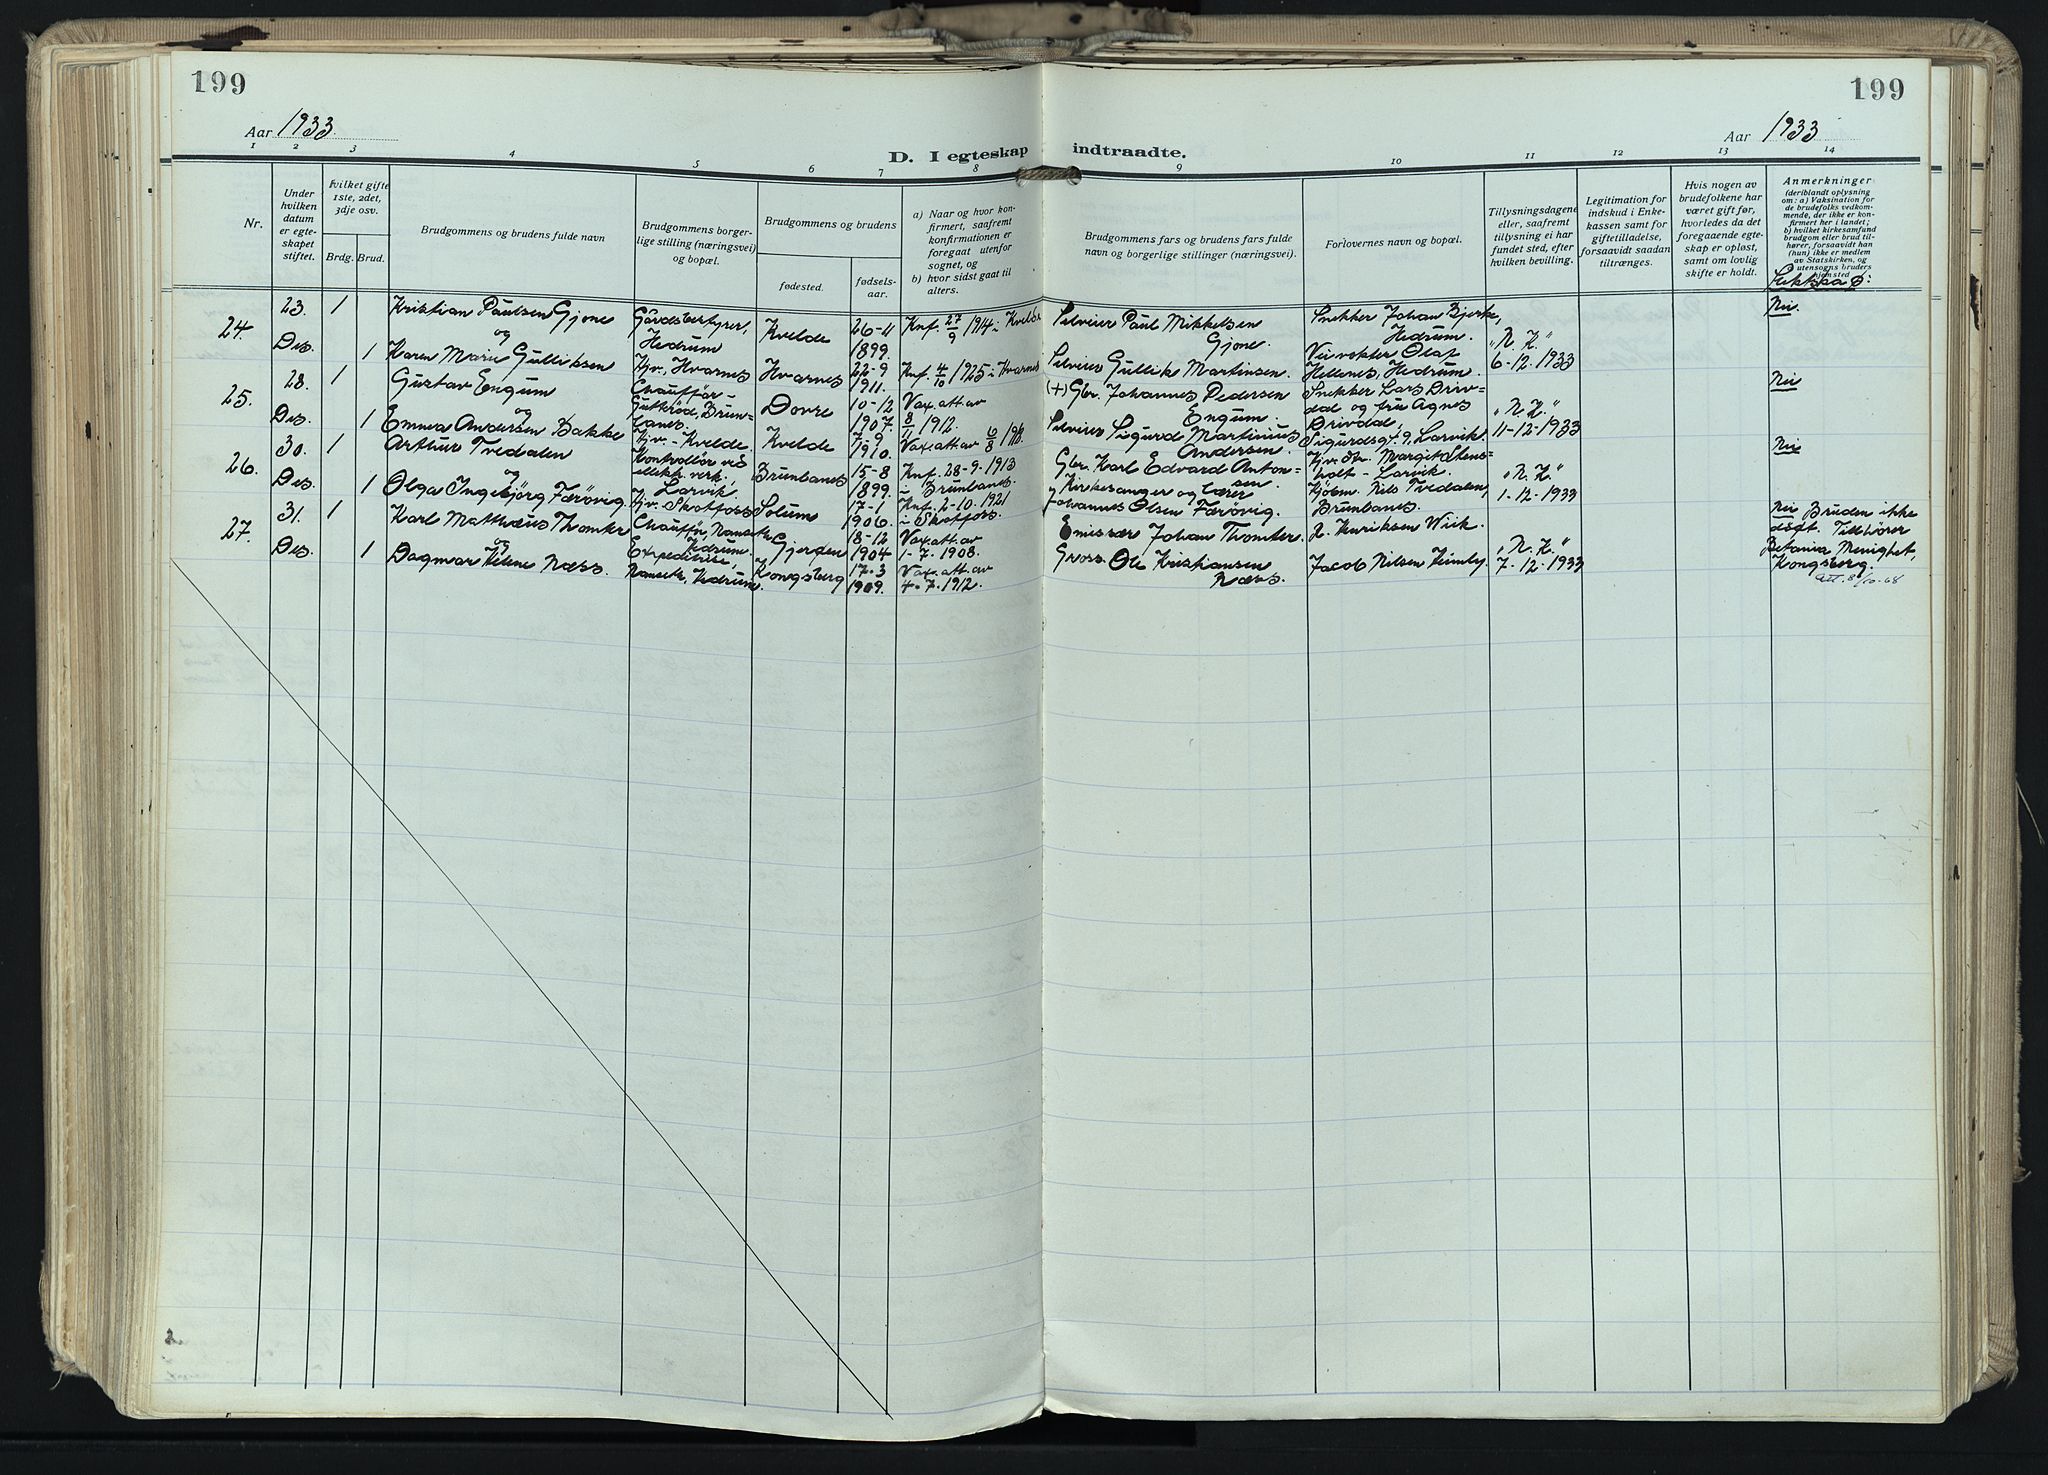 199
199
Aar 1933.
Aar 1933
D. I egteskap indtraadte.
1 2 3 4 5 6 7 8 9 10 11 12 13 14
Nr.
Under hvilken datum er egteskapet stiftet.
Hvilket gifte 1ste, 2det, 3dje osv.
Brdg. Brud.
Brudgommens og brudens fulde navn
Brudgommens borgerlige stilling (næringsvei) og bopæl.
Brudgommens og brudens
fødested.
fødselsaar.
a) Naar og hvor konfirmert, saafremt konfirmationen er foregaat utenfor sognet, og
b) hvor sidst gaat til alters.
Brudgommens fars og brudens fars fulde navn og borgerlige stillinger (næringsvei).
Forlovernes navn og bopæl.
Tillysningsdagene eller, saafremt tillysning ei har fundet sted, efter hvilken bevilling.
Legitimation for indskud i Enkekassen samt for giftetilladelse, forsaavidt saadan tiltrænges.
Hvis nogen av brudefolkene har været gift før, hvorledes da det foregaaende egteskap er opløst, samt om lovlig skifte er holdt.
Anmerkninger
(deriblandt oplysning om: a) Vaksination for de brudefolks vedkommende, der ikke er konfirmert her i landet; b) hvilket kirkesamfund brudgom eller brud tilhører, forsaavidt han (hun) ikke er medlem av Statskirken, og utensogns bruders hjemsted
24. 23. Des. 1
Kristian Paulsen Gjone
Gårdsbestyrer, Hedrum
Kvelde
26-11 1899.
Knf. 27/9 1914 i Kvelde
Selveier Paul Mikkelsen Gjone.
Snekker Johan Bjerke, Hedrum.
"N. K."
6-12-1933
Nei.
og
1
Karen Marie Gulliksen
Hjv., Hvarnes
Hvarnes
22-9 1911.
Knf. 4/10 1925 i Hvarnes
Selveier Gullik Martinsen.
Veivokter Olaf Hellenes, Hedrum.
25. 28. Des. 1
Gustav Engum
Chauffør -
Dovre
10-12 1907.
Vax.att.av 8/11 1912.
(+) Gbr. Johannes Pedersen Engum.
Snekker Lars Drivdal og fru Agnes Drivdal, Sigurdsgt. 9, Larvik.
"N. K."
11-12-1933
Nei
og
1
Emma Andersen Bakke
Hjv. - Kvelde.
Kvelde
7-9 1910.
Vax.att.av 6/8
Selveier Sigurd Martinius Andersen.
26. 30. Des. 1
Arthur Tvedalen
Kontrollør ved elektr. verk, Larvik.
Brunlanes
15-8 1899.
Knf. 28-9-1913 i Brunlanes.
Gbr. Karl Edvard Antonsen.
"N. K."
1-12-1933
Nei
og
1
Olga Ingebjörg Færövig
Hjv. Skotfoss
Solum
17-1 1906.
Knf. 2-10-1921 i Skotfoss.
Kirkesanger og lærer Johannes Olsen Færövig.
Kjøbm. Nils Tvedalen, Brunlanes.
27. 31. Des. 1
Karl Matthæus Thomter
Chauffør, Hedrum.
Gjerpen
18-12 1904
Vax.att.av 1-7-1908.
Emissær Johan Thomter.
H. Henriksen Wiik.
"N. K."
7-12-1933
Nei Bruden ikke døpt. Tilhører Betania Menighet, Kongsberg.
att. 8/10-68
og
1
Dagmar Helene Næss.
Expeditrise, Hedrum.
Kongsberg
17-3 1909.
Vax.att.av 4-7-1912.
Gross. Ole Kristiansen Næss.
Jacob Nilsen